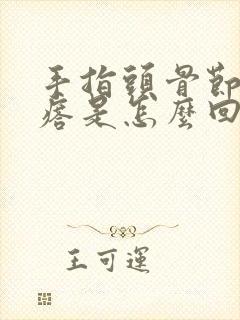 手指頭骨節
痞是怎麼回
王可運